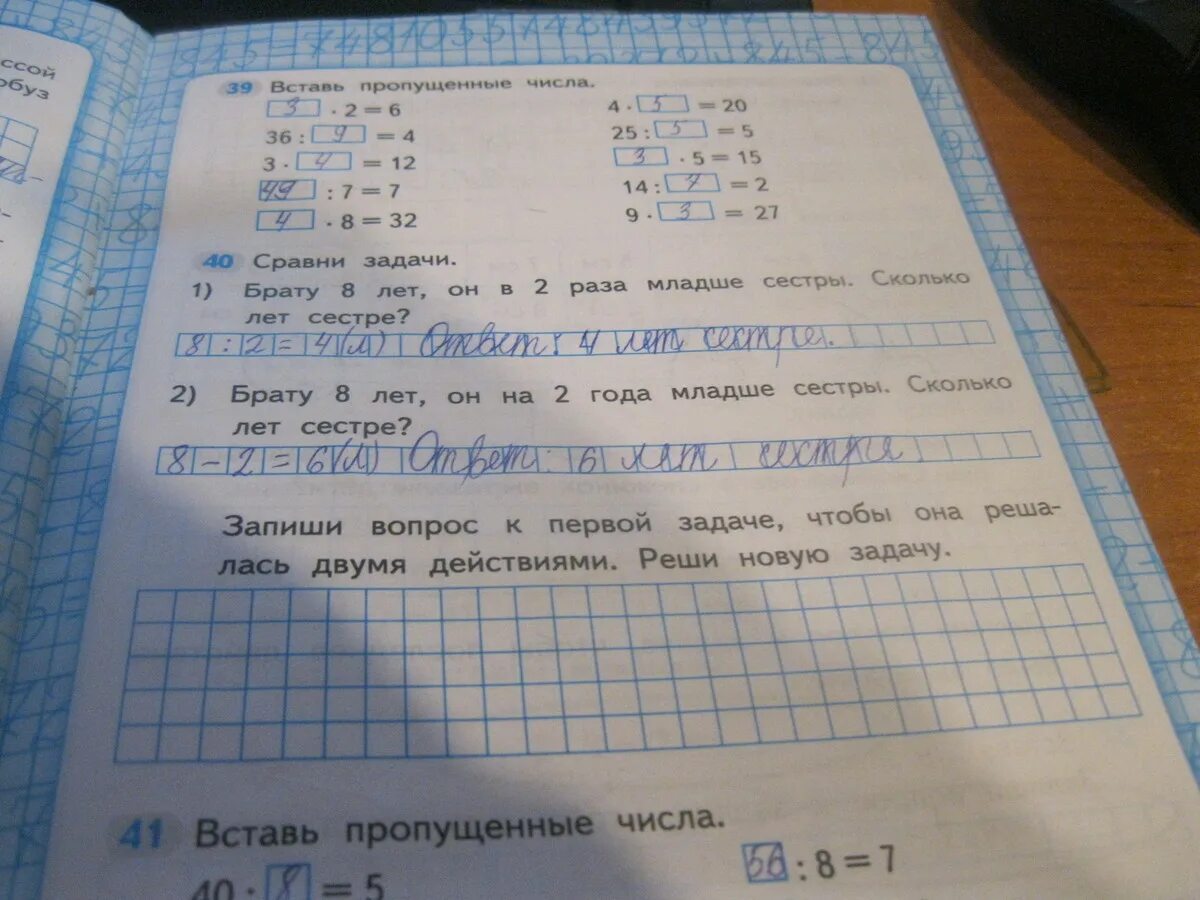 845=748105574843957
845=845
ссой
обуз
39 Вставь пропущенные числа.
3 · 2 = 6 4 · 5 = 20
36 : 9 = 4 25 : 5 = 5
3 · 4 = 12 3 · 5 = 15
49 : 7 = 7 14 : 7 = 2
4 · 8 = 32 9 · 3 = 27
40 Сравни задачи.
1) Брату 8 лет, он в 2 раза младше сестры. Сколько
лет сестре?
8 : 2 = 4 (л) Ответ: 4 лет сестре.
2) Брату 8 лет, он на 2 года младше сестры. Сколько
лет сестре?
8 - 2 = 6 (л) Ответ: 6 лет сестре
Запиши вопрос к первой задаче, чтобы она реша-
лась двумя действиями. Реши новую задачу.
41 Вставь пропущенные числа.
40 : 8 = 5 56 : 8 = 7